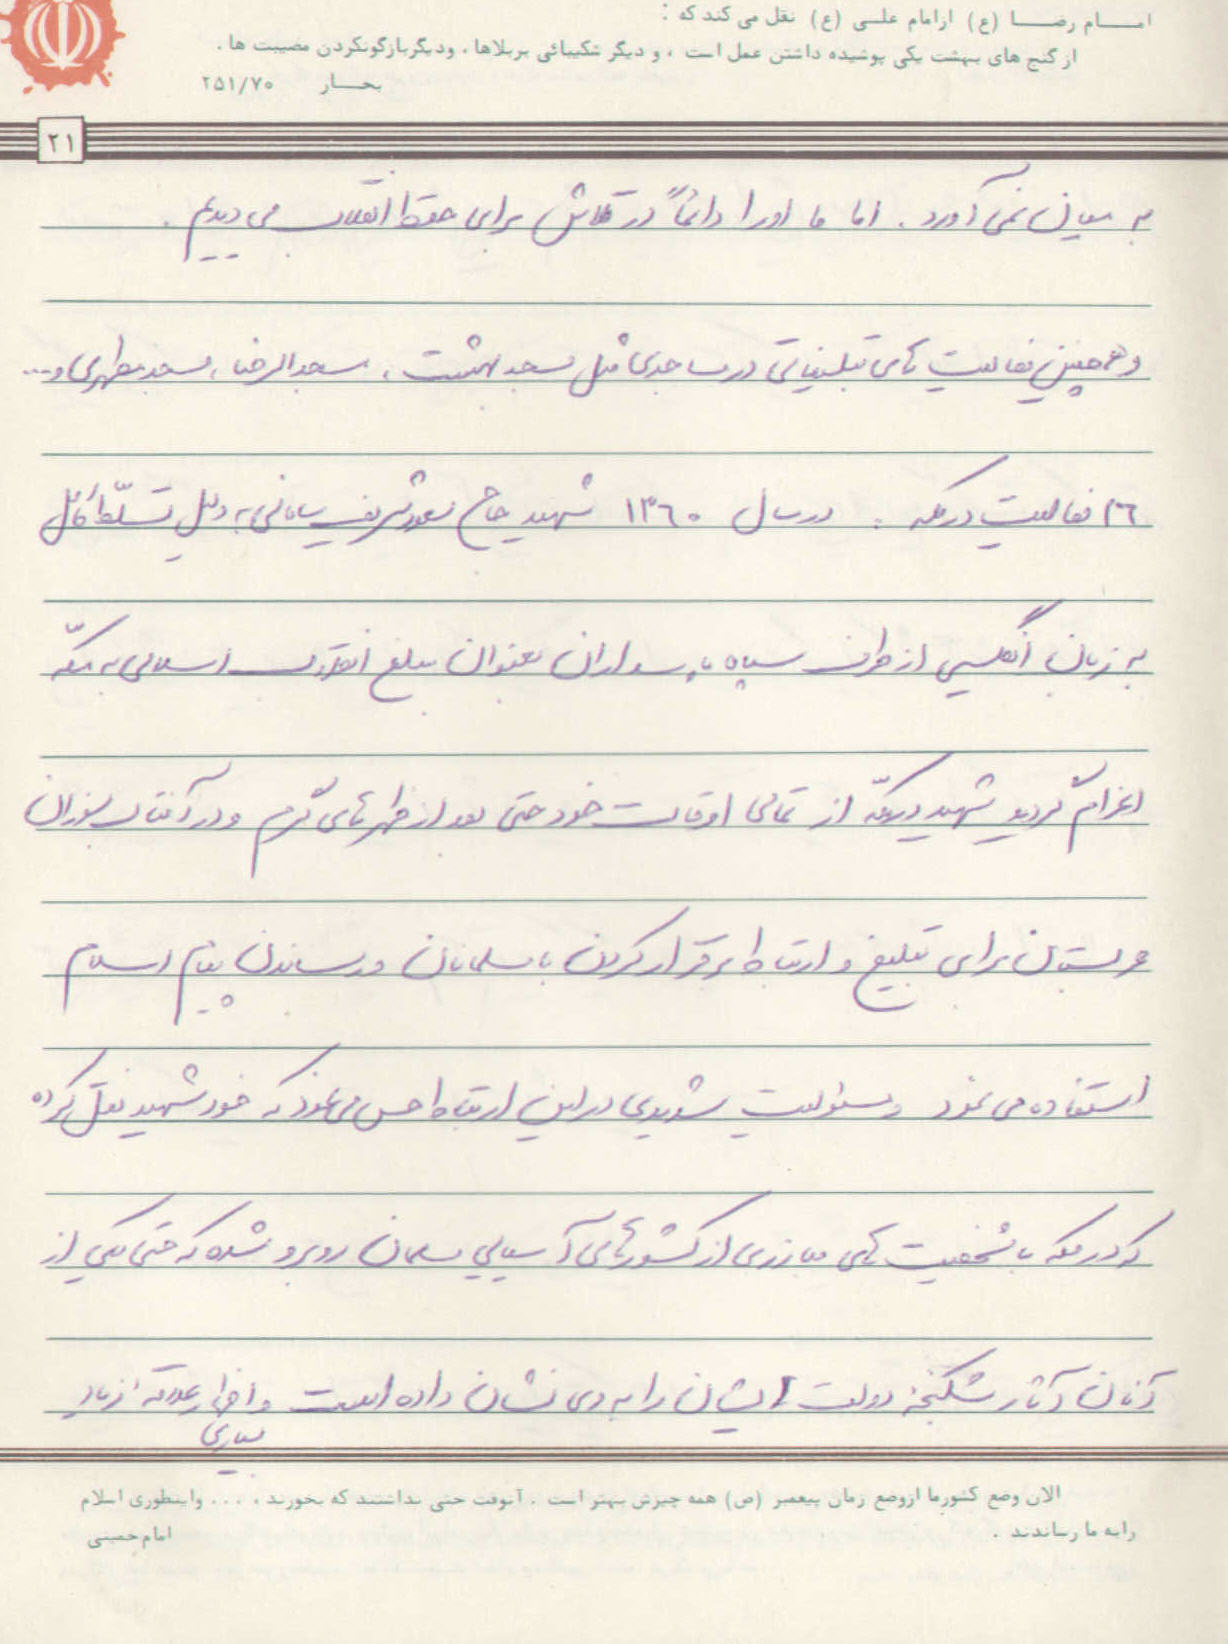 امـــام رضـــا (ع) ازامام علـــی (ع) نقل می کند که :
از گنج های بهشت یکی پوشیده داشتن عمل است ، و دیگر شکیبائی بربلاها ، ودیگربازگونکردن مصیبت ها .
بحـــار ۲۵۱/۷۰
۲۱
به میان نمی آورد . اما ما او را دائماً در تلاش برای حفظ انقلاب می دیدیم .
و همچنین فعالیت های تبلیغاتی در مساجدی مثل مسجد بهشت ، مسجد الرضا ، مسجد مطهری و...
۲۶ فعالیت در مکه : در سال ۱۳۶۰ شهید حاج شریف سامانی به دلیل تسلّط کامل
به زبان انگلیسی از طرف سپاه پاسداران بعنوان مبلغ انقلاب اسلامی به مکّه
اعزام گردید شهید در مکّه از تمامی اوقات خود حتی بعد از ظهر های گرم و در آفتاب سوزان
عربستان برای تبلیغ و ارتباط برقرار کردن با مسلمانان و رساندن پیام اسلام
استفاده می نمود و مسئولیت شدیدی در این ارتباط حس می نمود که خود شهید نقل کرده
که در مکه با شخصیت های مبارزی از کشورهای آسیایی مسلمان روبرو شده که حتی یکی از
آنان آثار شکنجهٔ دولت ایشان را به وی نشان داده است و اظهار علاقه زیاد
بسیاری
الان وضع کشورما ازوضع زمان پیغمبر (ص) همه چیزش بهتر است . آنوقت حتی نداشتند که بخورند ، ... واینطوری اسلام
رابه ما رساندند .
امام خمینی